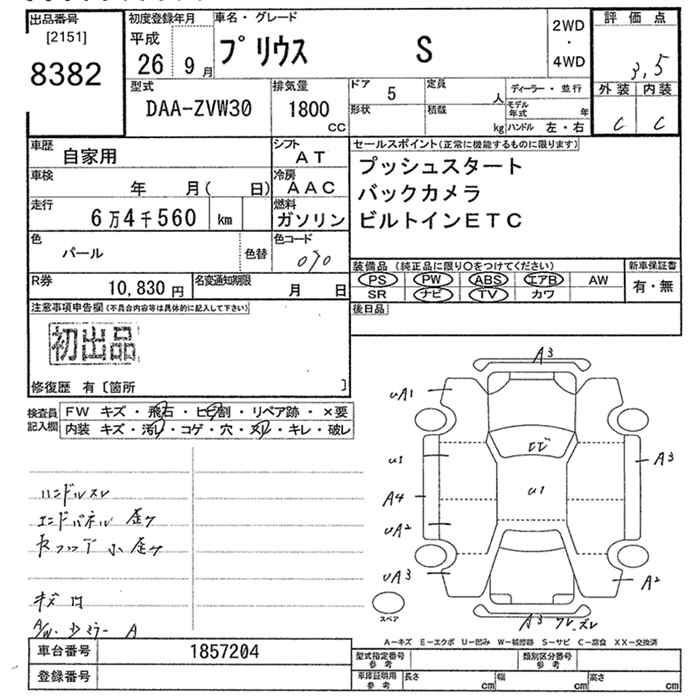 出品番号 初度登録年月 車名・グレード 評価点
[2151]
8382
平成
26 9月
プリウス S
2WD
・
4WD
3.5
型式 排気量 ドア 5 定員 人 ディーラー・並行 外装 内装
DAA-ZVW30 1800 CC
形状 積載 kg モデル年式 年
ハンドル 左・右
C C
車歴 自家用 シフト AT
セールスポイント(正常に機能するものに限ります)
プッシュスタート
バックカメラ
ビルトインETC
車検 年 月( 日) 冷房 AAC
走行 6万4千560 km 燃料 ガソリン
色 パール 色替 色コード 070
装備品 (純正品に限り○をつけてください) 新車保証書
PS PW ABS エアB AW 有・無
SR ナビ TV カワ
R券 10,830円 名変通知期限 月 日
後日品
注意事項申告欄(不具合内容等は具体的に記入して下さい)
初出品
修復歴 有〔箇所 〕
検査員記入欄
FW キズ・飛石・ヒビ割・リペア跡・×要
内装 キズ・汚レ・コゲ・穴・ヌレ・キレ・破レ
ハンドルスレ
エンドパネル 歪ケ
小 歪ケ
キズ 凹
A/W. ミラー A
A3
uA1
u1
A4
uA2
uA3
ヒビ
u1
A3
A2
A3 スレ
スペア
A-キズ E-エクボ U-凹み W-補修跡 S-サビ C-腐食 XX-交換済
車台番号 1857204
登録番号
型式指定番号 参考 類別区分番号 参考
車庫証明用 参考 長さ cm 幅 cm 高さ cm